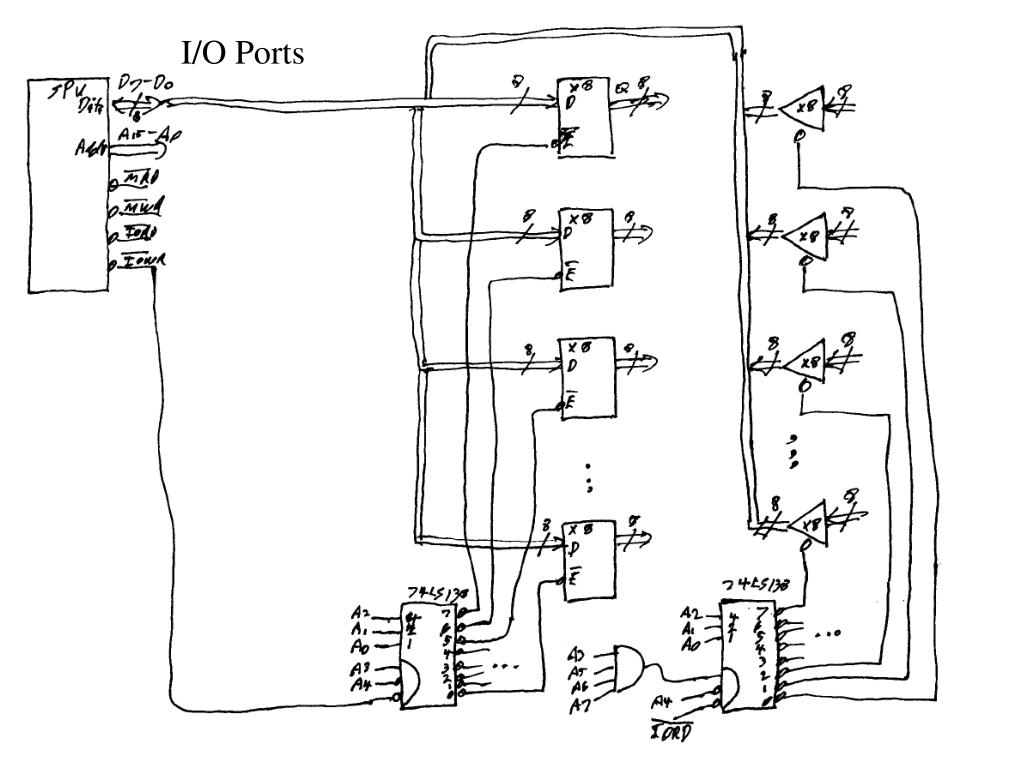 I/O Ports
D7-D0
Data
8
A15-A0
MRD
MWR
IORD
IOWR
8
X8
D
Q
8
E
8
X8
8
8
X8
D
8
E
8
X8
8
8
X8
D
8
E
8
X8
8
8
X8
D
8
E
8
X8
8
74LS138
A2 4 7
A1 2 6
A0 1 5
4
A3 3
A4 2
1
0
74LS138
A2 4 7
A1 2 6
A0 1 5
4
3
2
1
0
A3
A5
A6
A7
A4
IORD